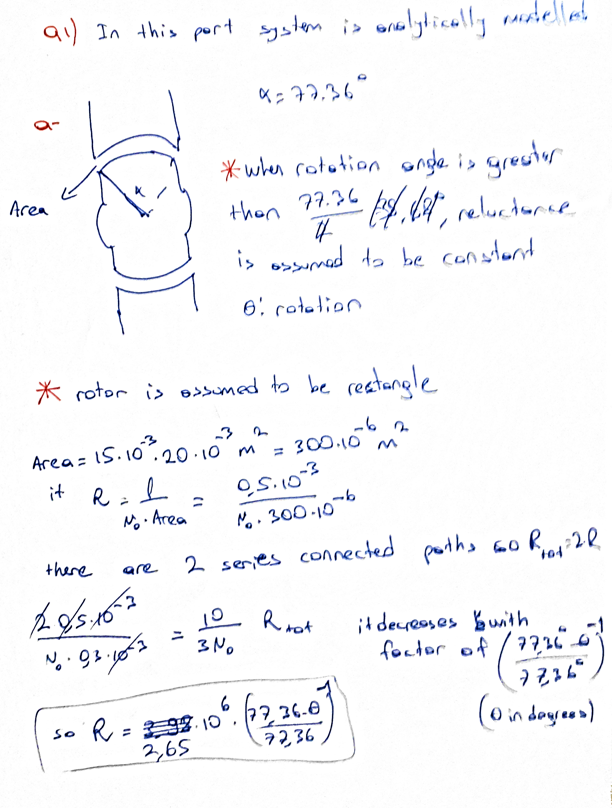 Q1) In this part system is analytically modelled
α = 77.36°
a-
α
Area
* when rotation angle is greater
than 77.36 / 4, reluctance
is assumed to be constant
θ: rotation
* rotor is assumed to be rectangle
Area = 15.10^-3 . 20.10^-3 m^2 = 300.10^-6 m^2
if R = l / N₀.Area = 0,5.10^-3 / N₀.300.10^-6
there are 2 series connected paths so R_tot = 2R
2 0,5.10^-3 / N₀.0,3.10^-3 = 10 / 3N₀ R_tot it decreases with
factor of (77,36° - θ / 77,36°)^-1
(θ in degrees)
so R = 2,65 . 10^6 . (77,36-θ / 77,36)^-1